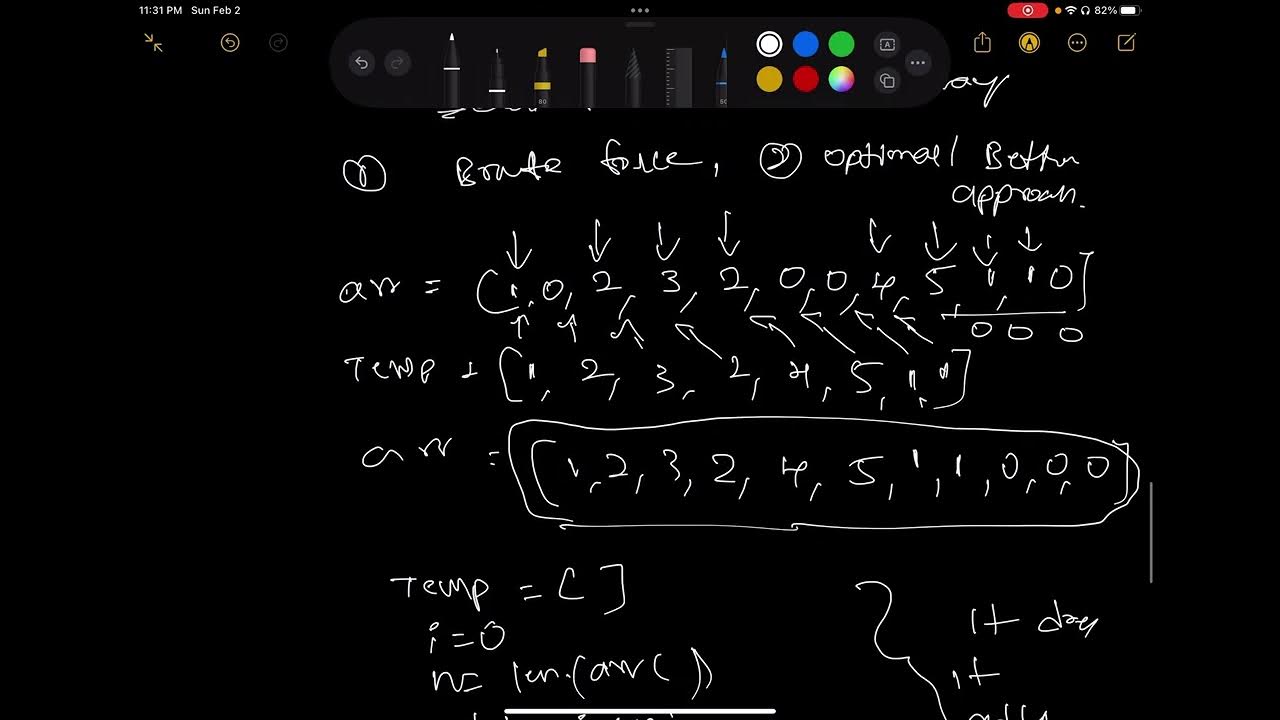 11:31 PM Sun Feb 2
82%
80
50
A
① Brute force, ② optimal / Better
approach.
arr = [1, 0, 2, 3, 2, 0, 0, 4, 5, 1, 1 0]
0 0 0
Temp = [1, 2, 3, 2, 4, 5, 1, 1]
arr = [1, 2, 3, 2, 4, 5, 1, 1, 0, 0, 0]
Temp = [ ]
i = 0
It
n = len(arr())
it